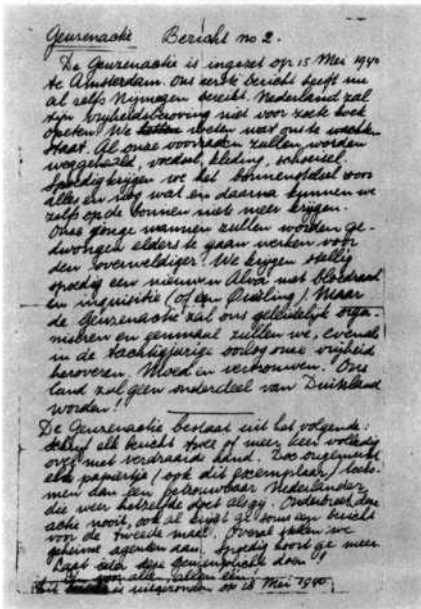 Geuzenactie Bericht no 2.
De Geuzenactie is ingezet op 15 Mei 1940
te Amsterdam. Ons eerste bericht heeft nu
al zelfs Nijmegen bereikt. Nederland zal
zijn vrijheidsberoving niet voor zoete koek
opeten! We weten wat ons te wachten
staat. Al onze voorraden zullen worden
weggehaald, voedsel, kleding, schoeisel.
Spoedig krijgen we het bonnenstelsel voor
alles en nog wat en daarna kunnen we
zelfs op de bonnen niets meer krijgen.
Onze jonge mannen zullen worden ge-
dwongen elders te gaan werken voor
den overweldiger. We krijgen stellig
spoedig een nieuwen Alva met bloedraad
en inquisitie (of een Quisling). Maar
de Geuzenactie zal ons geleidelijk orga-
niseeren en eenmaal zullen we, evenals
in de tachtigjarige oorlog onze vrijheid
heroveren. Moed en vertrouwen! Ons
land zal geen onderdeel van Duitsland
worden!
De Geuzenactie bestaat uit het volgende:
schrijf elk bericht twee of meer keer volledig
over met verdraaide hand. Doe ongemerkt
elk papiertje (ook dit exemplaar) toeko-
men aan een betrouwbaar Nederlander,
die weer hetzelfde doet als gij. Onderbreek deze
actie nooit, ook al krijgt ge soms een bericht
voor de tweede maal. Overal stellen we
geheime agenten aan. Spoedig hoort ge meer.
Laat ieder deze Geuzenplicht doen!
Eén voor allen, allen één.
Dit is uitgezonden op 18 Mei 1940